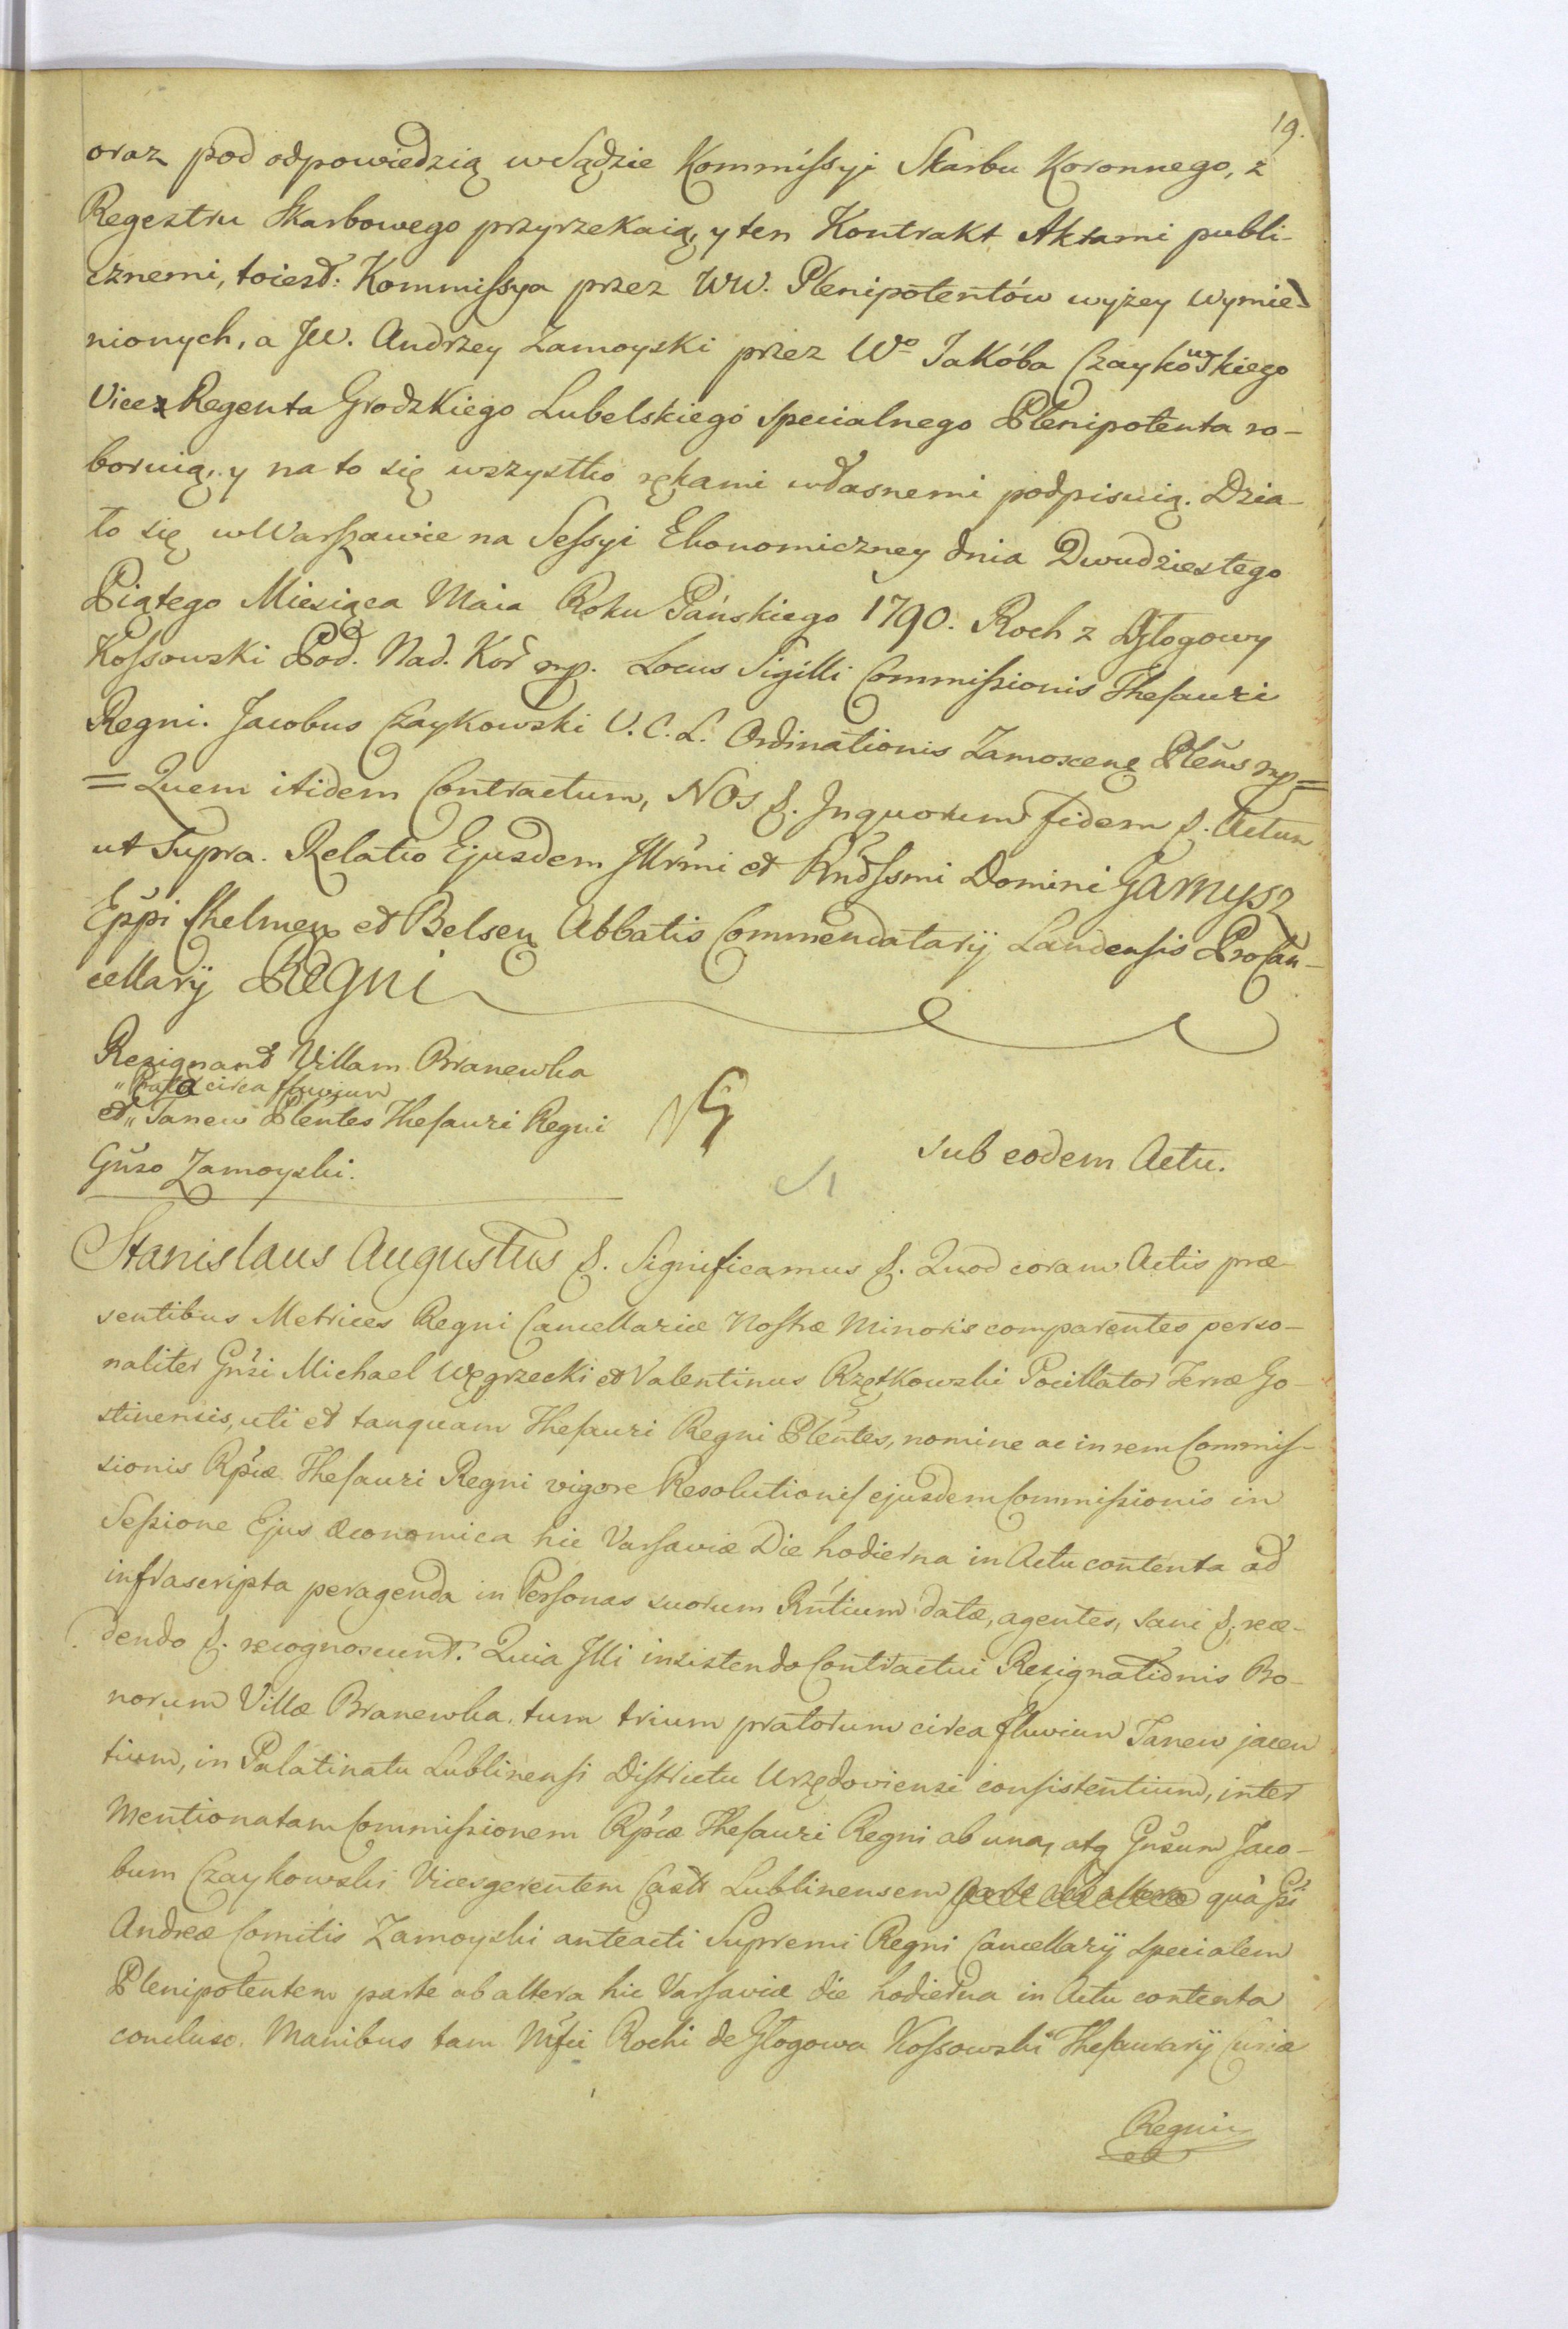 19.
oraz pod odpowiedzią w Sądzie Kommissyi Skarbu Koronnego, z
Regestru Skarbowego przyrzekaią, y ten Kontrakt Aktami publi-
cznemi, toiest: Kommissya przez WW. Plenipotentów wyżey wymie-
nionych, a JW. Andrzey Zamoyski przez Wo Jakóba Czaykowskiego
Vice Regenta Grodzkiego Lubelskiego specialnego Plenipotenta ro-
boruią, y na to się wszystko rękami własnemi podpisuią. Dzia-
ło się w Warszawie na Sessyi Ekonomiczney dnia Dwudziestego
Piątego Miesiąca Maia Roku Pańskiego 1790. Roch z Głogowy
Kossowski Pod. Nad. Kor mp. Locus Sigilli Commissionis Thesauri
Regni. Jacobus Czaykowski V. C. L. Ordinationis Zamoscenę Plenus mp=
=Quem itidem Contractum, NOS &. In quorum fidem &. Actum
ut Supra. Relatio Ejusdem Illrmi et Rndssmi Domini Garnysz
Eppi Chelmen et Belsen Abbatis Commendatarij Landensis Procan-
cellarij Regni
Resignant Villam Branewka
„Prata circa fluvium
et „Tanew Plentes Thesauri Regni
Gnso Zamoyski.
sub eodem Actu.
Stanislaus Augustus &. Significamus &. Quod coram Actis præ-
sentibus Metrices Regni Cancellariæ Nostræ Minoris comparentes perso-
naliter Gnsi Michael Węgrzecki et Valentinus Rzętkowski Pocillator Terræ Go-
stinensis, uti et tanquam Thesauri Regni Plentes, nomine ac in rem Commis-
sionis Rpcæ Thesauri Regni vigore Resolutionis ejusdem Commissionis in
Sessione Ejus Œconomica hic Varsaviæ Die hodierna in Actu contenta ad
infrascripta peragenda in Personas suorum Rntium datæ, agentes, sani &, rece-
dendo &. recognoscunt. Quia Illi insistendo Contractui Resignationis Bo-
norum Villæ Branewka, tum trium pratorum circa fluvium Tanew jacen
tium, in Palatinatu Lublinensi Districtu Urzędoviensi consistentium, inter
Mentionatam Commissionem Rpcæ Thesauri Regni ab una, atq Gnsum Jaco-
bum Czaykowski Vicesgerentem Castr Lublinensem quà
Andreæ Comitis Zamoyski anteacti Supremi Regni Cancellarij specialem
Plenipotentem parte ab altera hic Varsaviæ die hodierna in Actu contenta
concluso. Manibus tam Mfci Rochi de Głogowa Kossowski Thesaurarij Curiæ
Regni